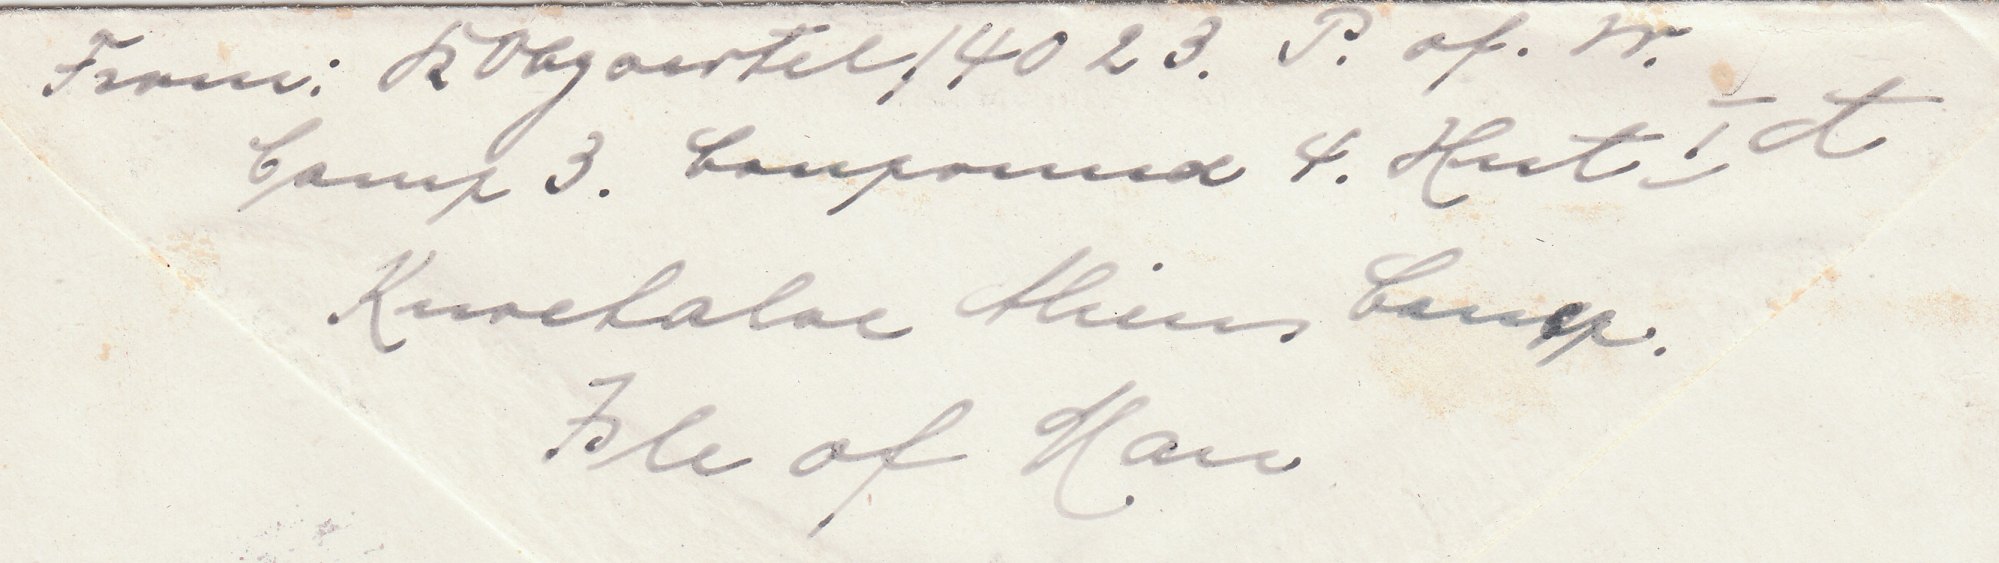 From: K Obgartel, 14023. P. of. W.
Camp 3. Compound 4. Hut I A
Knockaloe Aliens Camp.
Isle of Man